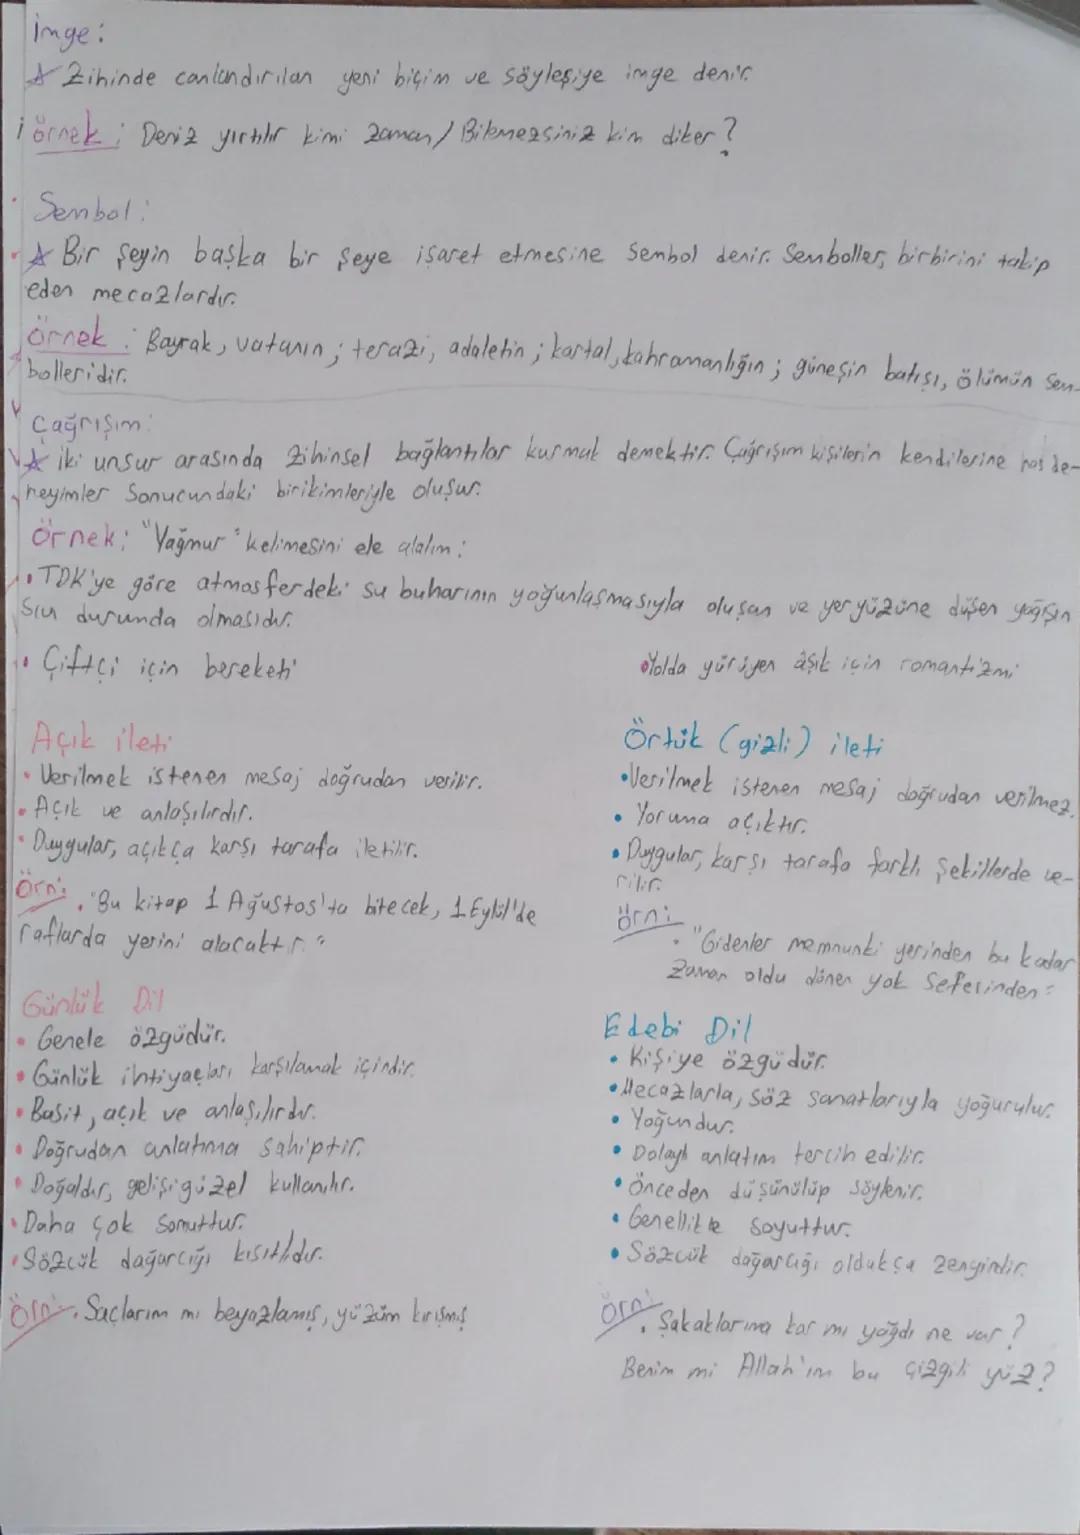 İmge:
Zihinde canlandırılan yeni biçim ve söyleşiye imge denir.
Örnek: Deniz yırtılır kimi zaman / Bilemezsiniz kim diker?
Sembol:
Bir şeyin başka bir şeye işaret etmesine sembol denir. Semboller, birbirini takip
eden mecazlardır.
Örnek: Bayrak, vatanın; terazi, adaletin; kartal, kahramanlığın; güneşin batışı, ölümün sem-
bolleridir.
Çağrışım:
İki unsur arasında zihinsel bağlantılar kurmak demektir. Çağrışım kişilerin kendilerine has de-
neyimler sonucundaki birikimleriyle oluşur.
Örnek: "Yağmur" kelimesini ele alalım:
• TDK'ye göre atmosferdeki su buharının yoğunlaşmasıyla oluşan ve yeryüzüne düşen yağışın
sıvı durumda olmasıdır.
• Çiftçi için bereketi
• Yolda yürüyen âşık için romantizmi
Açık ileti
• Verilmek istenen mesaj doğrudan verilir.
• Açık ve anlaşılırdır.
• Duygular, açıkça karşı tarafa iletilir.
Örn:
. "Bu kitap 1 Ağustos'ta bitecek, 1 Eylül'de
raflarda yerini alacaktır."
Örtük (gizli) ileti
• Verilmek istenen mesaj doğrudan verilmez.
• Yoruma açıktır.
• Duygular, karşı tarafa farklı şekillerde ve-
rilir.
Örn:
. "Gidenler memnunki yerinden bu kadar
Zaman oldu dönen yok seferinden"
Günlük Dil
• Genele özgüdür.
• Günlük ihtiyaçları karşılamak içindir.
• Basit, açık ve anlaşılırdır.
• Doğrudan anlatıma sahiptir.
• Doğaldır, gelişigüzel kullanılır.
• Daha çok somuttur.
• Sözcük dağarcığı kısıtlıdır.
Örn: . Saçlarım mı beyazlamış, yüzüm kırışmış
Edebi Dil
• Kişiye özgüdür.
• Mecazlarla, söz sanatlarıyla yoğurulur.
• Yoğundur.
• Dolaylı anlatım tercih edilir.
• Önceden düşünülüp söylenir.
• Genellikle soyuttur.
• Sözcük dağarcığı oldukça zengindir.
Örn:
. Şakaklarıma kar mı yağdı ne var?
Benim mi Allah'ım bu çizgili yüz?